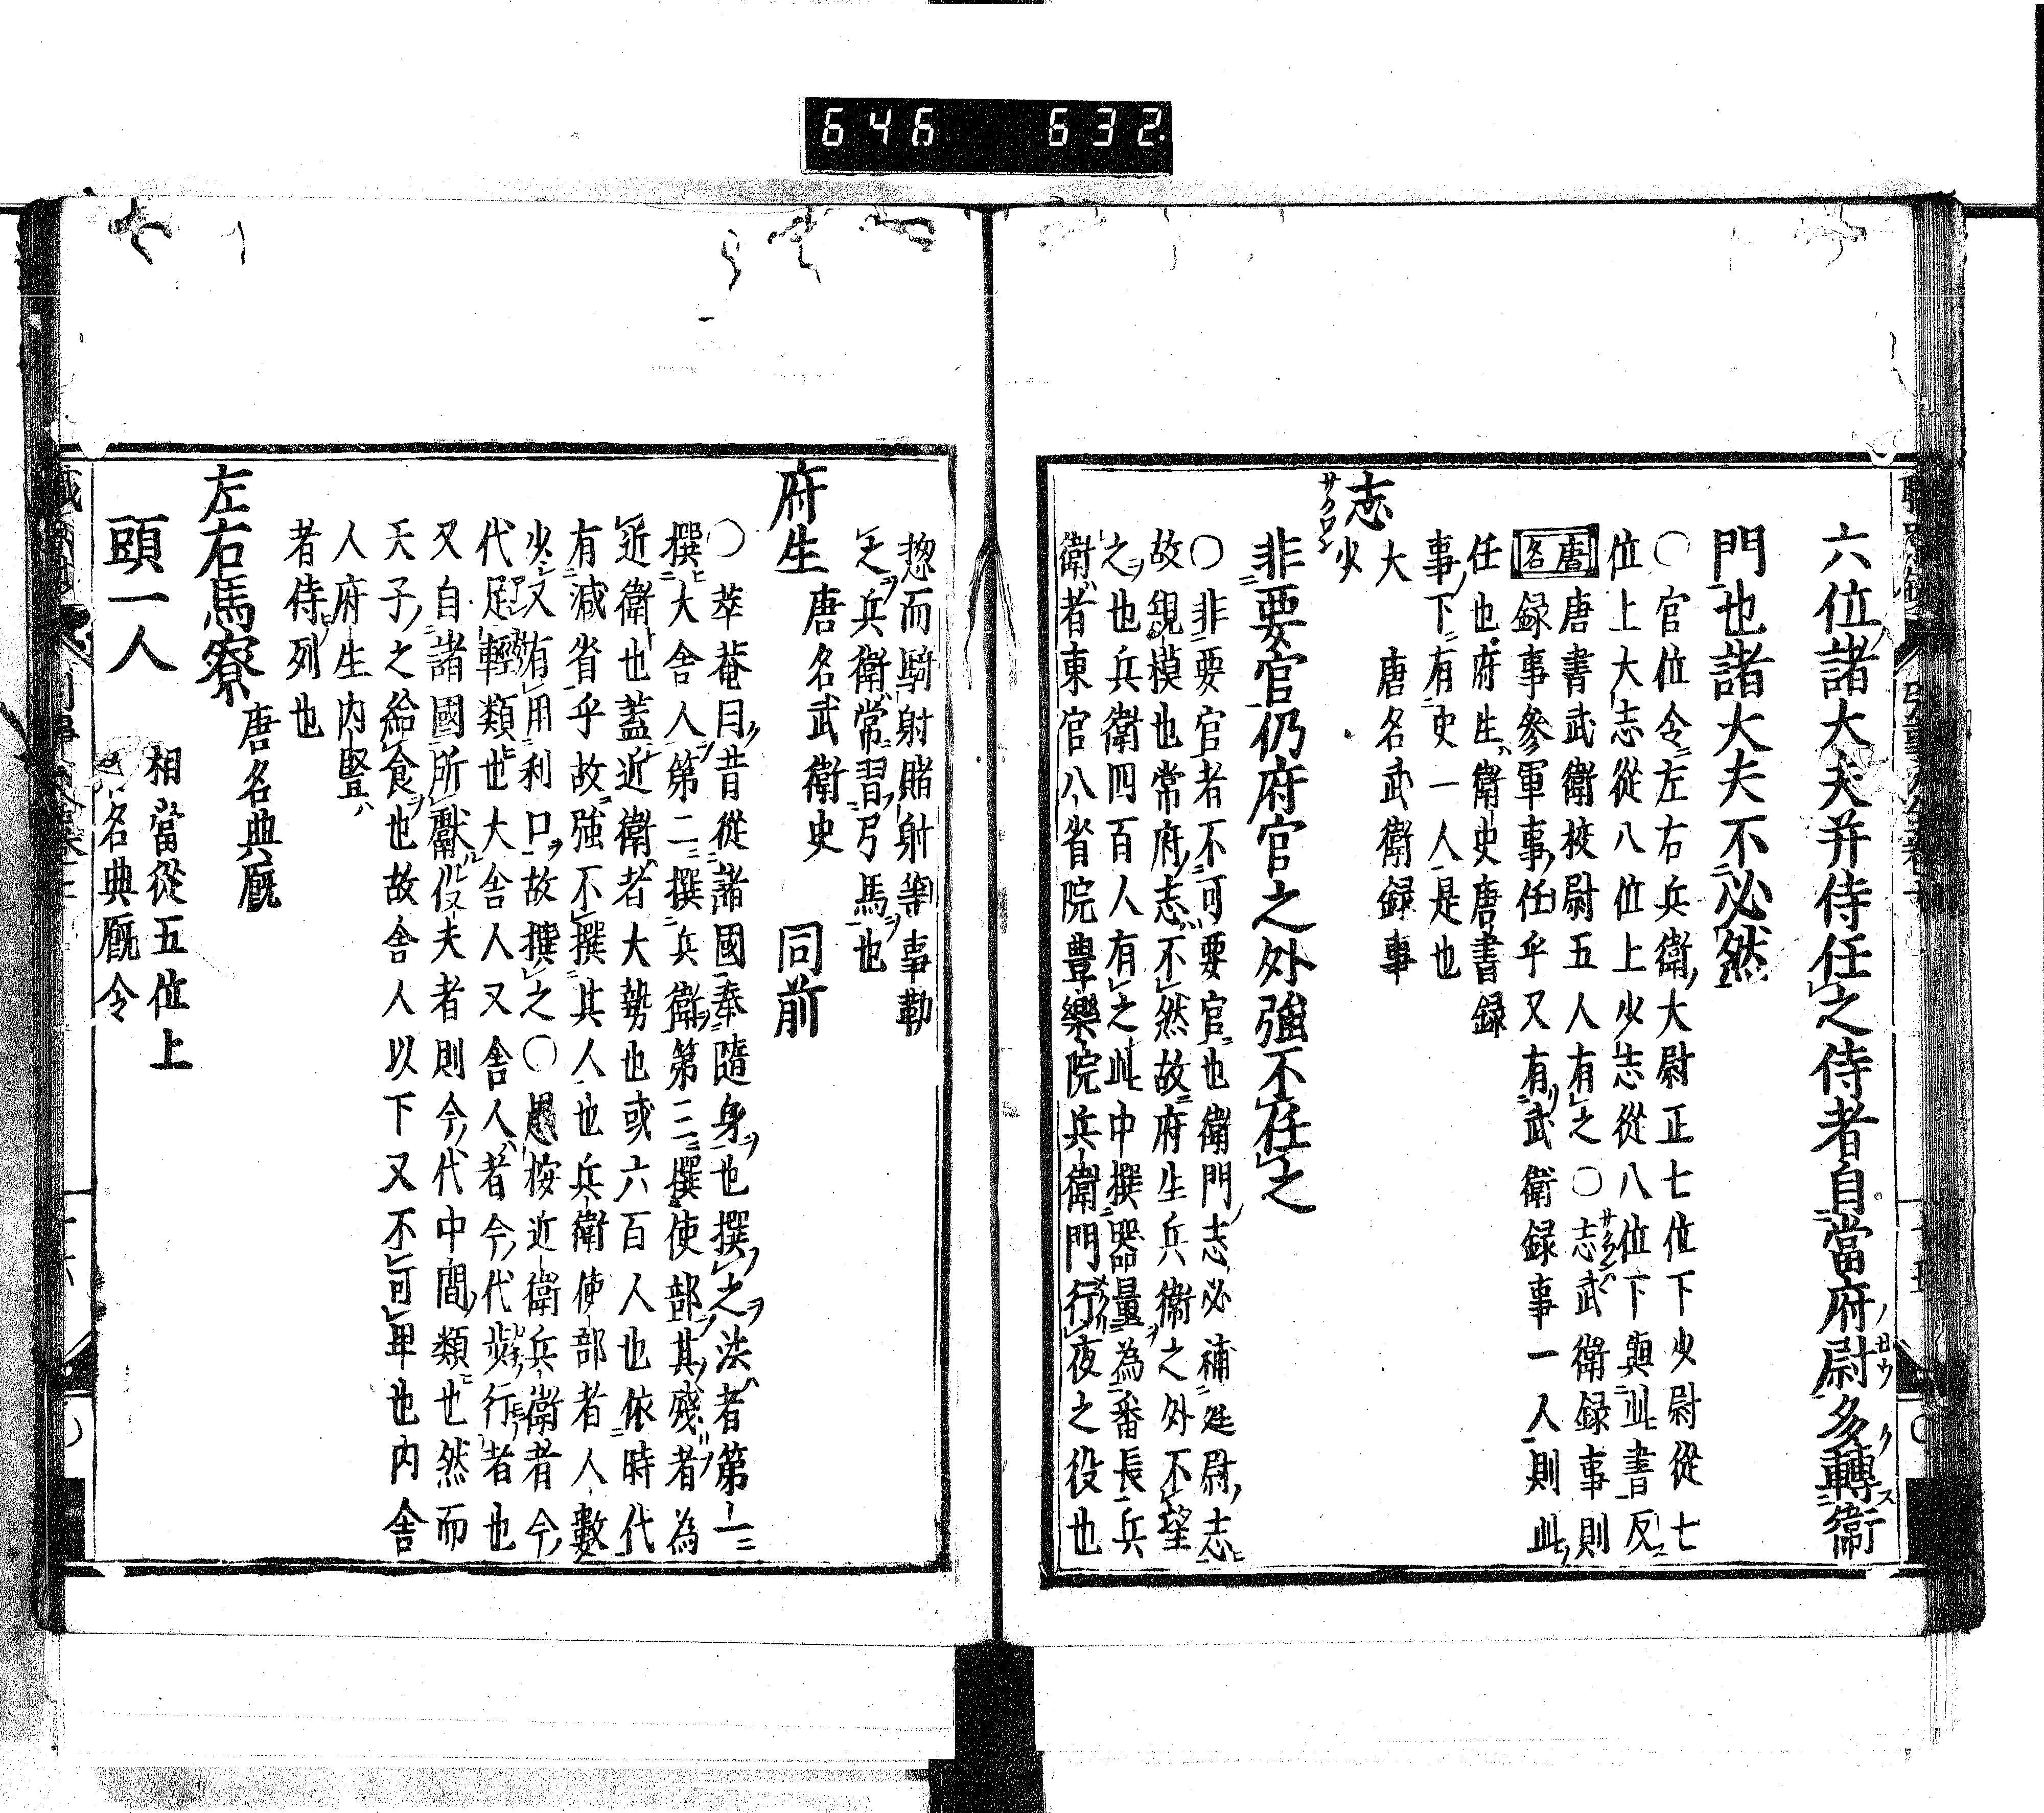 646 632
六位諸大夫并侍任之侍者自當府尉多轉衛
門也諸大夫不必然
〇官位令左右兵衛大尉正七位下少尉從七
位上大志從八位上少志從八位下與此書反
唐名 唐書武衛校尉五人有之〇志武衛録事則
録事參軍事任乎又有武衛録事一人則此
任也府生衛史唐書録
事下有史一人是也
志 大 唐名武衛録事
サクワン 少
非要官仍府官之外強不任之
〇非要官者不可要官也衛門志必補廷尉志
故規模也常府志不然故府生兵衛之外不望
之也兵衛四百人有之此中撰器量為番長兵
衛者東官八省院豊樂院兵衛門行夜之役也
惣而騎射賭射等事勒
之兵衛常習弓馬也
府生 唐名武衛史 同前
〇萃菴曰昔從諸國奉隨身也撰之法者第一
撰大舎人第二撰兵衛第三撰使部其殘者為
近衛也蓋近衛者大勢也或六百人也依時代
有減省乎故強不撰其人也兵衛使部者人數
少又有用利口故撰之〇愚按近衛兵衛者今
代足輕類也大舎人又舎人者今代歩行者也
又自諸國所獻仗夫者則今代中間類也然而
天子之給食也故舎人以下又不可卑也内舎
人府生内豎
者侍列也
左右馬寮 唐名典厩
頭一人 相當從五位上
名典厩令